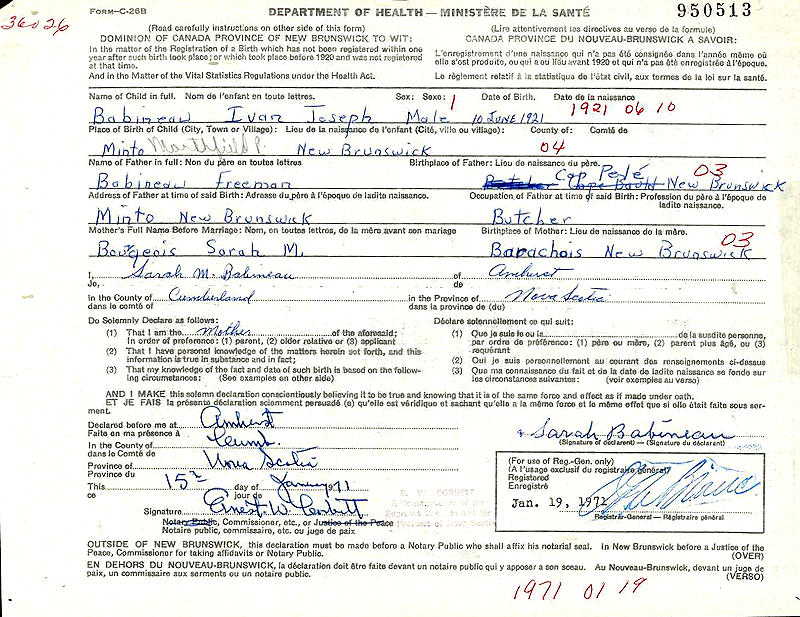 36026
FORM—C-26B
DEPARTMENT OF HEALTH — MINISTÈRE DE LA SANTÉ
950513
(Read carefully instructions on other side of form)
(Lire attentivement les directives au verso de la formule)
DOMINION OF CANADA PROVINCE OF NEW BRUNSWICK TO WIT:
CANADA PROVINCE DU NOUVEAU-BRUNSWICK A SAVOIR:
In the matter of the Registration of a Birth which has not been registered within one year after such birth took place; or which took place before 1920 and was not registered at that time.
L'enregistrement d'une naissance qui n'a pas été consignée dans l'année même où elle s'est produite, ou qui a eu lieu avant 1920 et n'a pas été enregistrée à l'époque.
And in the Matter of the Vital Statistics Regulations under the Health Act.
Le règlement relatif à la statistique de l'état civil, aux termes de la loi sur la santé.
Name of Child in full. Nom de l'enfant en toute lettres. Sex: Sexe: 1 Date of Birth. Date de la naissance
1921 06 10
Babineau Ivan Joseph Male 10 JUNE 1921
Place of Birth of Child (City, Town or Village): Lieu de naissance de l'enfant (Cité, ville ou village): County of: Comté de
Minto Northfield P. New Brunswick 04
Name of Father in full: Non du père en toutes lettres Birthplace of Father: Lieu de naissance du père.
Cap Pelé 03
Babineau Freeman New Brunswick
Address of Father at time of said Birth: Adresse du père à l'époque de ladite naissance. Occupation of Father at time of said Birth: Profession du père à l'époque de ladite naissance.
Minto New Brunswick Butcher
Mother's Full Name Before Marriage: Nom, en toutes lettres, de la mère avant son mariage Birthplace of Mother: Lieu de naissance de la mère.
03
Bourgeois Sarah M. Barachois New Brunswick
I, Sarah M. Babineau of Amherst
Je, de
In the County of Cumberland in the Province of Nova Scotia
dans le comté de dans la province de (du)
Do Solemnly Declare as follows:
Déclare solennellement ce qui suit:
(1) That I am the Mother of the aforesaid;
In order of preference: (1) parent, (2) older relative or (3) applicant
(1) Que je suis le ou la de la susdite personne,
par ordre de préférence: (1) père ou mère, (2) parent plus âgé, ou (3) requérant
(2) That I have personal knowledge of the matters herein set forth, and this information is true in substance and in fact;
(2) Qui je suis personnellement au courant des renseignements ci-dessus
(3) That my knowledge of the fact and date of such birth is based on the following circumstances: (See examples on other side)
(3) Que ma connaissance du fait et de la date de ladite naissance se fonde sur les circonstances suivantes: (voir exemples au verso)
AND I MAKE this solemn declaration conscientiously believing it to be true and knowing that it is of the same force and effect as if made under oath.
ET JE FAIS la présente déclaration sciemment persuadé (e) qu'elle est véridique et sachant qu'elle a la même force et le même effet que si elle était faite sous serment.
Declared before me at Amherst
Faite en ma présence à
In the County of Cumb.
dans le Comté de
Province of Nova Scotia
Province du
This 15th day of January 1971
ce jour de
Signature Ernest W. Corbett
Notary Public, Commissioner, etc., or Justice of the Peace
Notaire public, commissaire, etc. ou juge de paix
Sarah Babineau
(Signature of declarant) — (Signature du déclarant)
(For use of Reg.-Gen. only)
(A l'usage exclusif du registraire général)
Registered
Enregistré
Jan. 19, 1971
Registrar-General — Registraire général
OUTSIDE OF NEW BRUNSWICK, this declaration must be made before a Notary Public who shall affix his notarial seal. In New Brunswick before a Justice of the Peace, Commissioner for taking affidavits or Notary Public. (OVER)
EN DEHORS DU NOUVEAU-BRUNSWICK, la déclaration doit être faite devant un notaire public qui y apposer a son sceau. Au Nouveau-Brunswick, devant un juge de paix, un commissaire aux serments ou un notaire public. (VERSO)
1971 01 19